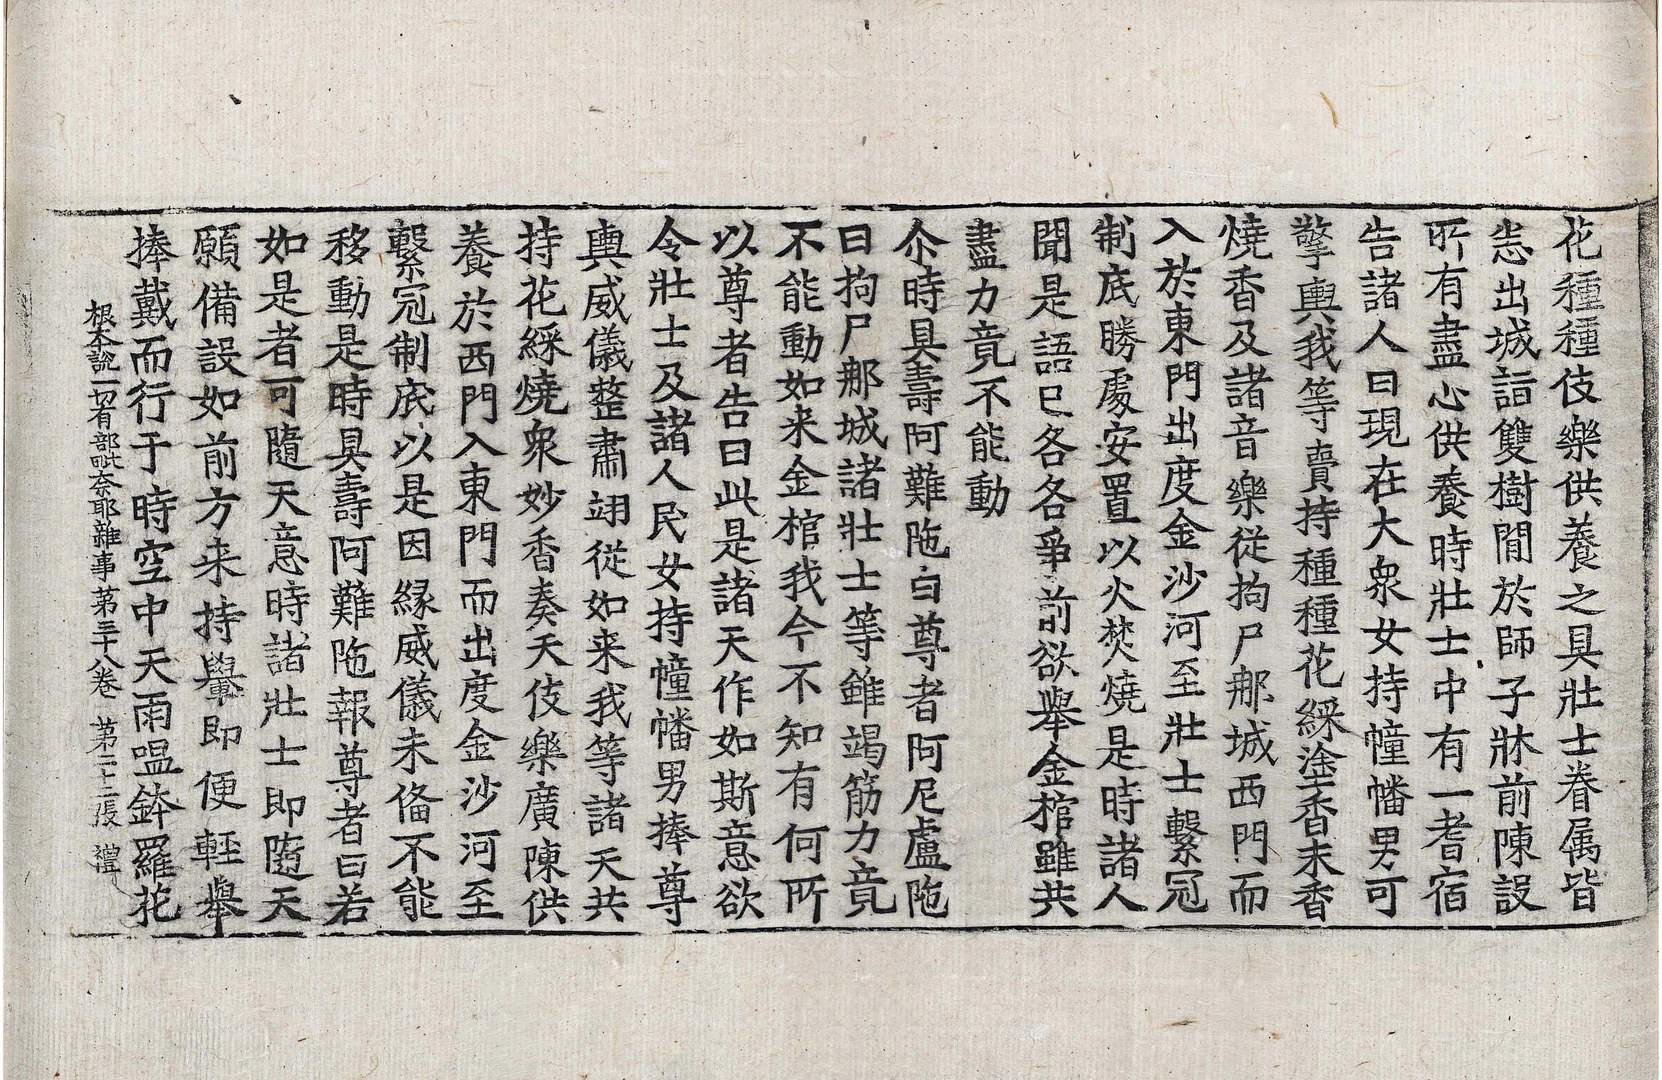 花種種伎樂供養之具壯士眷属皆
悉出城詣雙樹間於師子牀前陳設
所有盡心供養時壯士中有一耆宿
告諸人曰現在大衆女持幢幡男可
擎輿我等賣持種種花綵塗香末香
燒香及諸音樂從拘尸那城西門而
入於東門出度金沙河至壯士繫冠
制底勝處安置以火焚燒是時諸人
聞是語已各各爭前欲舉金棺雖共
盡力竟不能動
尒時具壽阿難陁白尊者阿尼盧陁
曰拘尸那城諸壯士等雖竭筋力竟
不能動如来金棺我今不知有何所
以尊者告曰此是諸天作如斯意欲
令壯士及諸人民女持幢幡男捧尊
輿威儀整肅翊從如来我等諸天共
持花綵燒衆妙香奏天伎樂廣陳供
養於西門入東門而出度金沙河至
繫冠制底以是因緣威儀未俻不能
移動是時具壽阿難陁報尊者曰若
如是者可隨天意時諸壯士即隨天
願備設如前方来持轝即便輕舉
捧戴而行于時空中天雨嗢鉢羅花
根本說一切有部毗奈耶雜事第三十八卷 第二十二張 禮